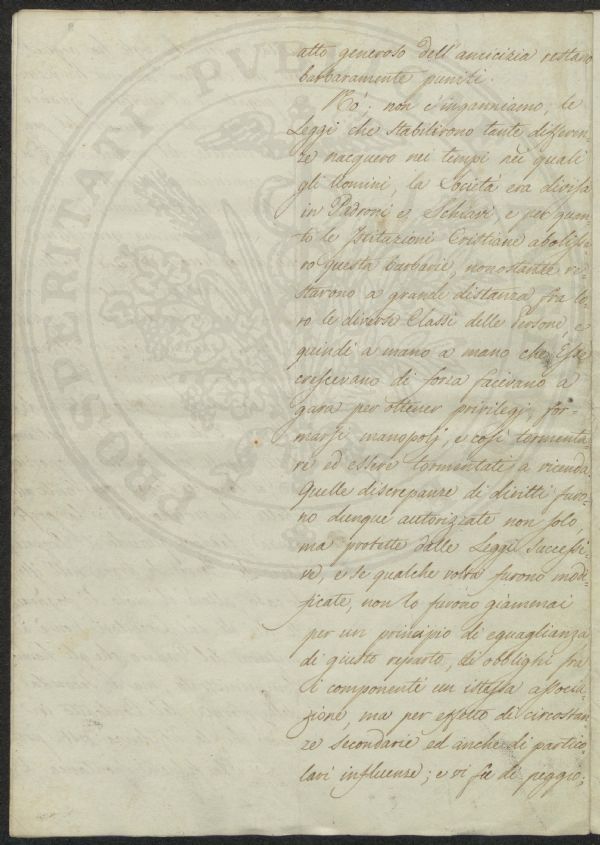 atto generoso dell'amicizia restano
barbaramente puniti.
Nò; non c'inganniamo, le
Leggi che stabilirono tante differen-
ze nacquero nei tempi nei quali
gli Uomini, la Società era divisa
in Padroni e Schiavi e per quan-
to le Istituzioni Cristiane abolisse-
ro questa barbarie, nonostante re-
starono a grande distanza fra lo-
ro le diverse Classi delle Persone, e
quindi a mano a mano che Esse
crescevano di forza facevano a
gara per ottener privilegj, for-
marsi manopolj, e così tormenta-
re ed essere tormentati a vicenda.
Quelle discrepanze di diritti furo-
no dunque autorizzate non solo,
ma protette dalle Leggi successi-
ve, e se qualche volta furono modi-
ficate, non lo furono giammai
per un principio di eguaglianza
di giusto reparto, di obblighi fra
i componenti un istessa associa-
zione, ma per effetto di circostan-
ze secondarie ed anche di partico-
lari influenze; e vi fu di peggio;
PROSPERITATI PVB